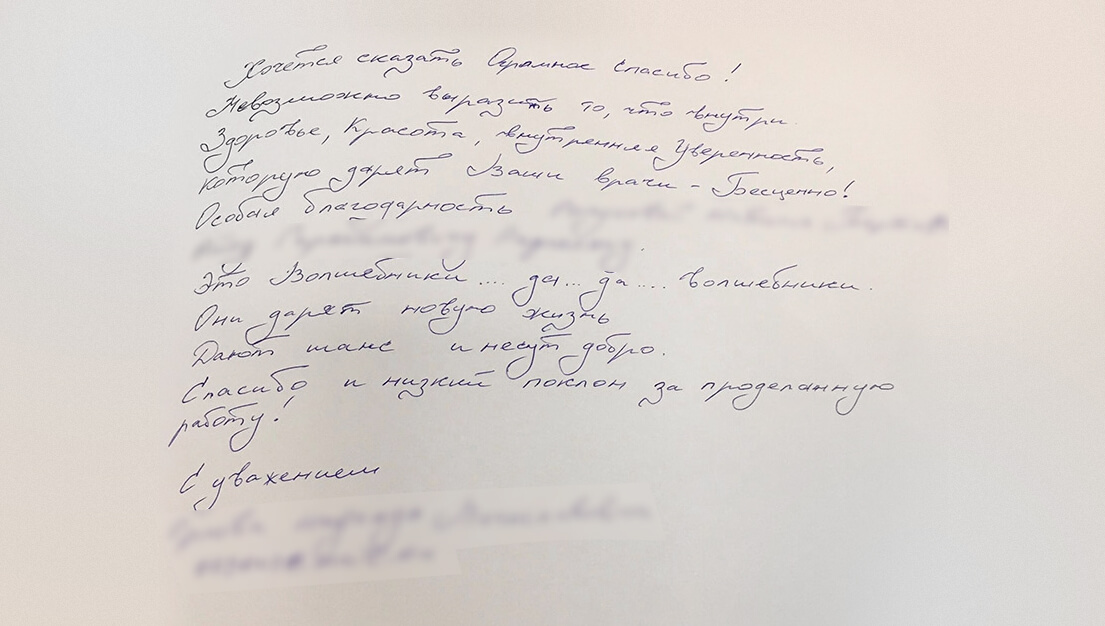 Хочется сказать Огромное Спасибо!
Невозможно выразить то, что внутри.
Здоровье, Красота, внутренняя Уверенность,
которую дарят Ваши врачи - Бесценно!
Особая благодарность
Это Волшебники.... да... да.... волшебники.
Они дарят новую жизнь
Дают шанс и несут добро.
Спасибо и низкий поклон за проделанную
работу!
С уважением